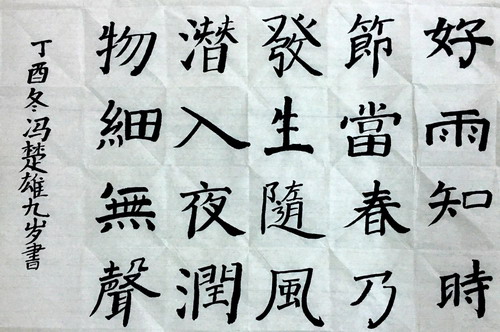 好雨知時
節當春乃
發生隨風
潛入夜潤
物細無聲
丁酉冬冯楚雄九岁書